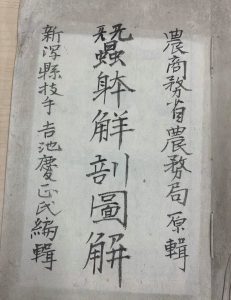 農商務省農務局原輯
蠶躰觧剖圖解
新泻縣技手吉池慶正氏編輯